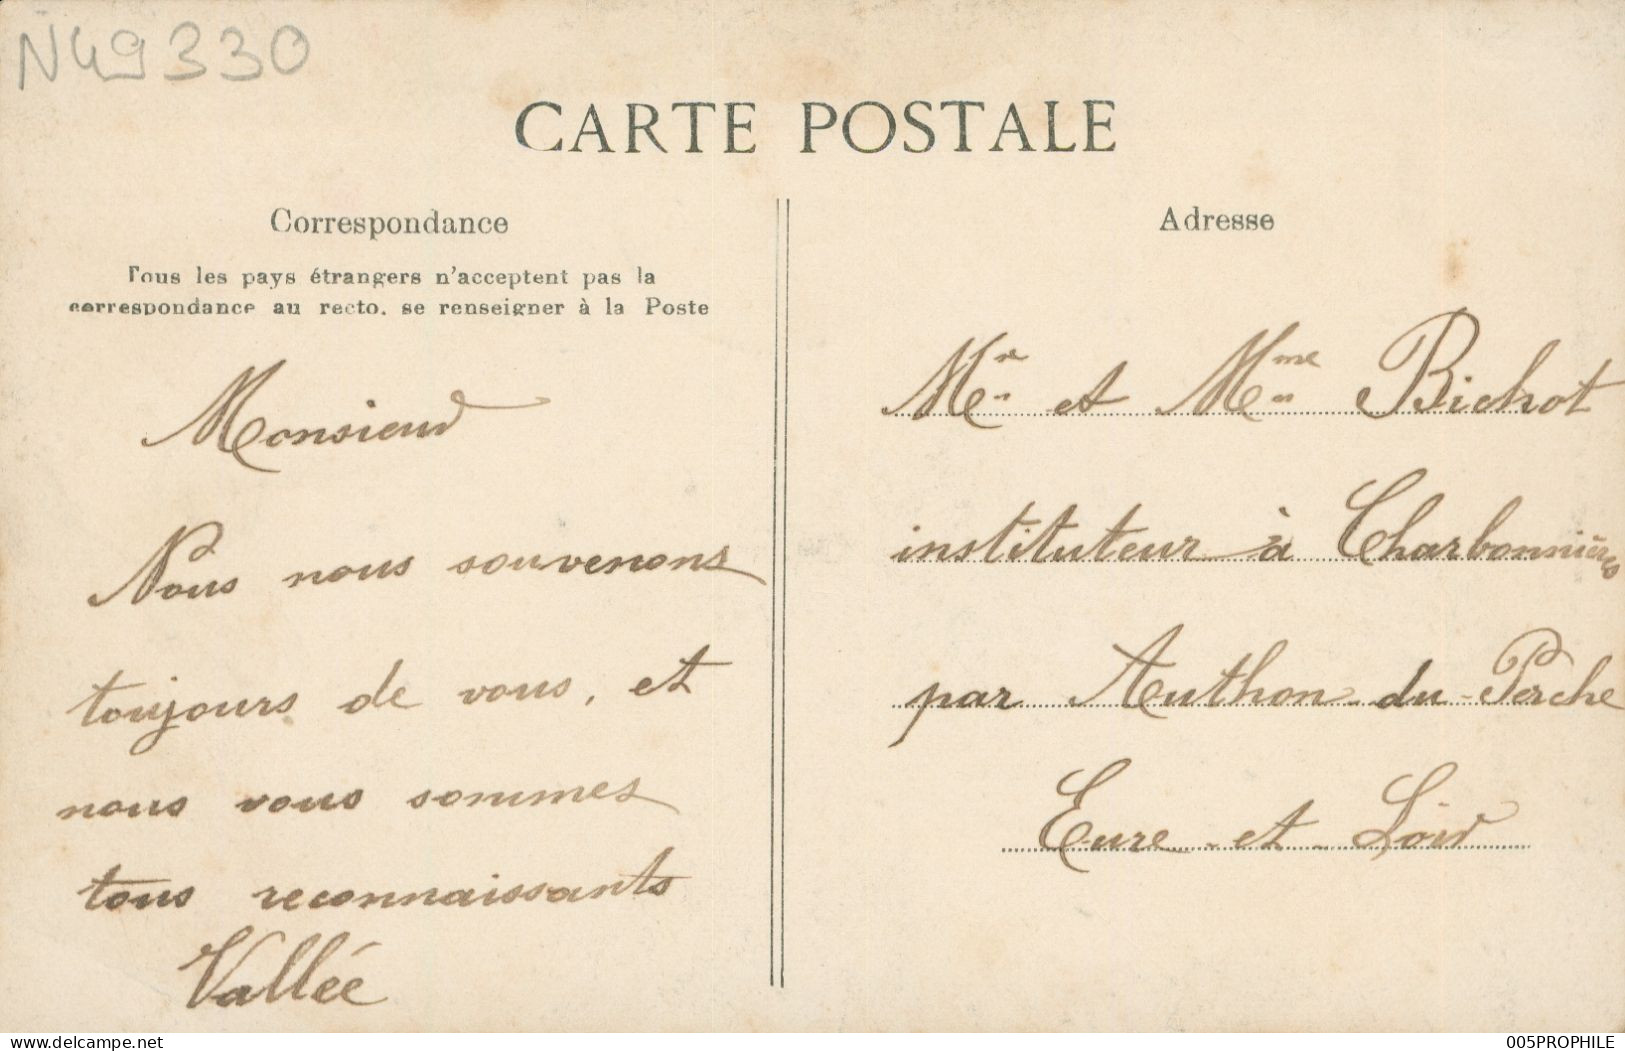 N49330
CARTE POSTALE
Correspondance
Tous les pays étrangers n'acceptent pas la
correspondance au recto, se renseigner à la Poste
Monsieur
Nous nous souvenons
toujours de vous, et
nous vous sommes
tous reconnaissants
Vallée
Adresse
Mr et Mme Bichot
instituteur à Charbonnières
par Authon-du-Perche
Eure-et-Loir
delcampe.net
005PROPHILE